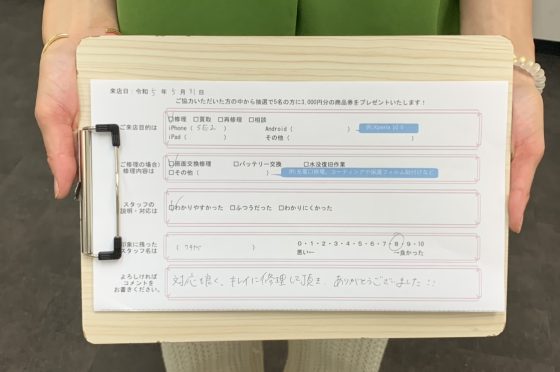 来店日：令和 5 年 5 月 31 日
ご協力いただいた方の中から抽選で5名の方に3,000円分の商品券をプレゼントいたします！
ご来店目的は
☑修理 □買取 □再修理 □相談
iPhone（ SE2 ） Android（ ）
iPad（ ） その他（ ）
（ご修理の場合）
修理内容は
☑画面交換修理 □バッテリー交換 □水没復旧作業
□その他（ ）
スタッフの
説明・対応は
☑わかりやすかった □ふつうだった □わかりにくかった
印象に残った
スタッフ名は
0・1・2・3・4・5・6・7・8・9・10
悪い← →良かった
よろしければ
コメントを
お書きください。
対応も良く、キレイに修理して頂き、ありがとうございました!!